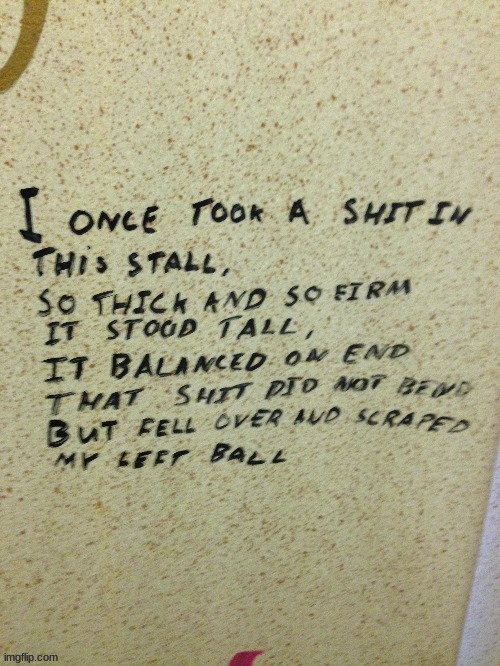 I ONCE TOOK A SHIT IN
THIS STALL,
SO THICK AND SO FIRM
IT STOOD TALL,
IT BALANCED ON END
THAT SHIT DID NOT BEND
BUT FELL OVER AND SCRAPED
MY LEFT BALL
imgflip.com